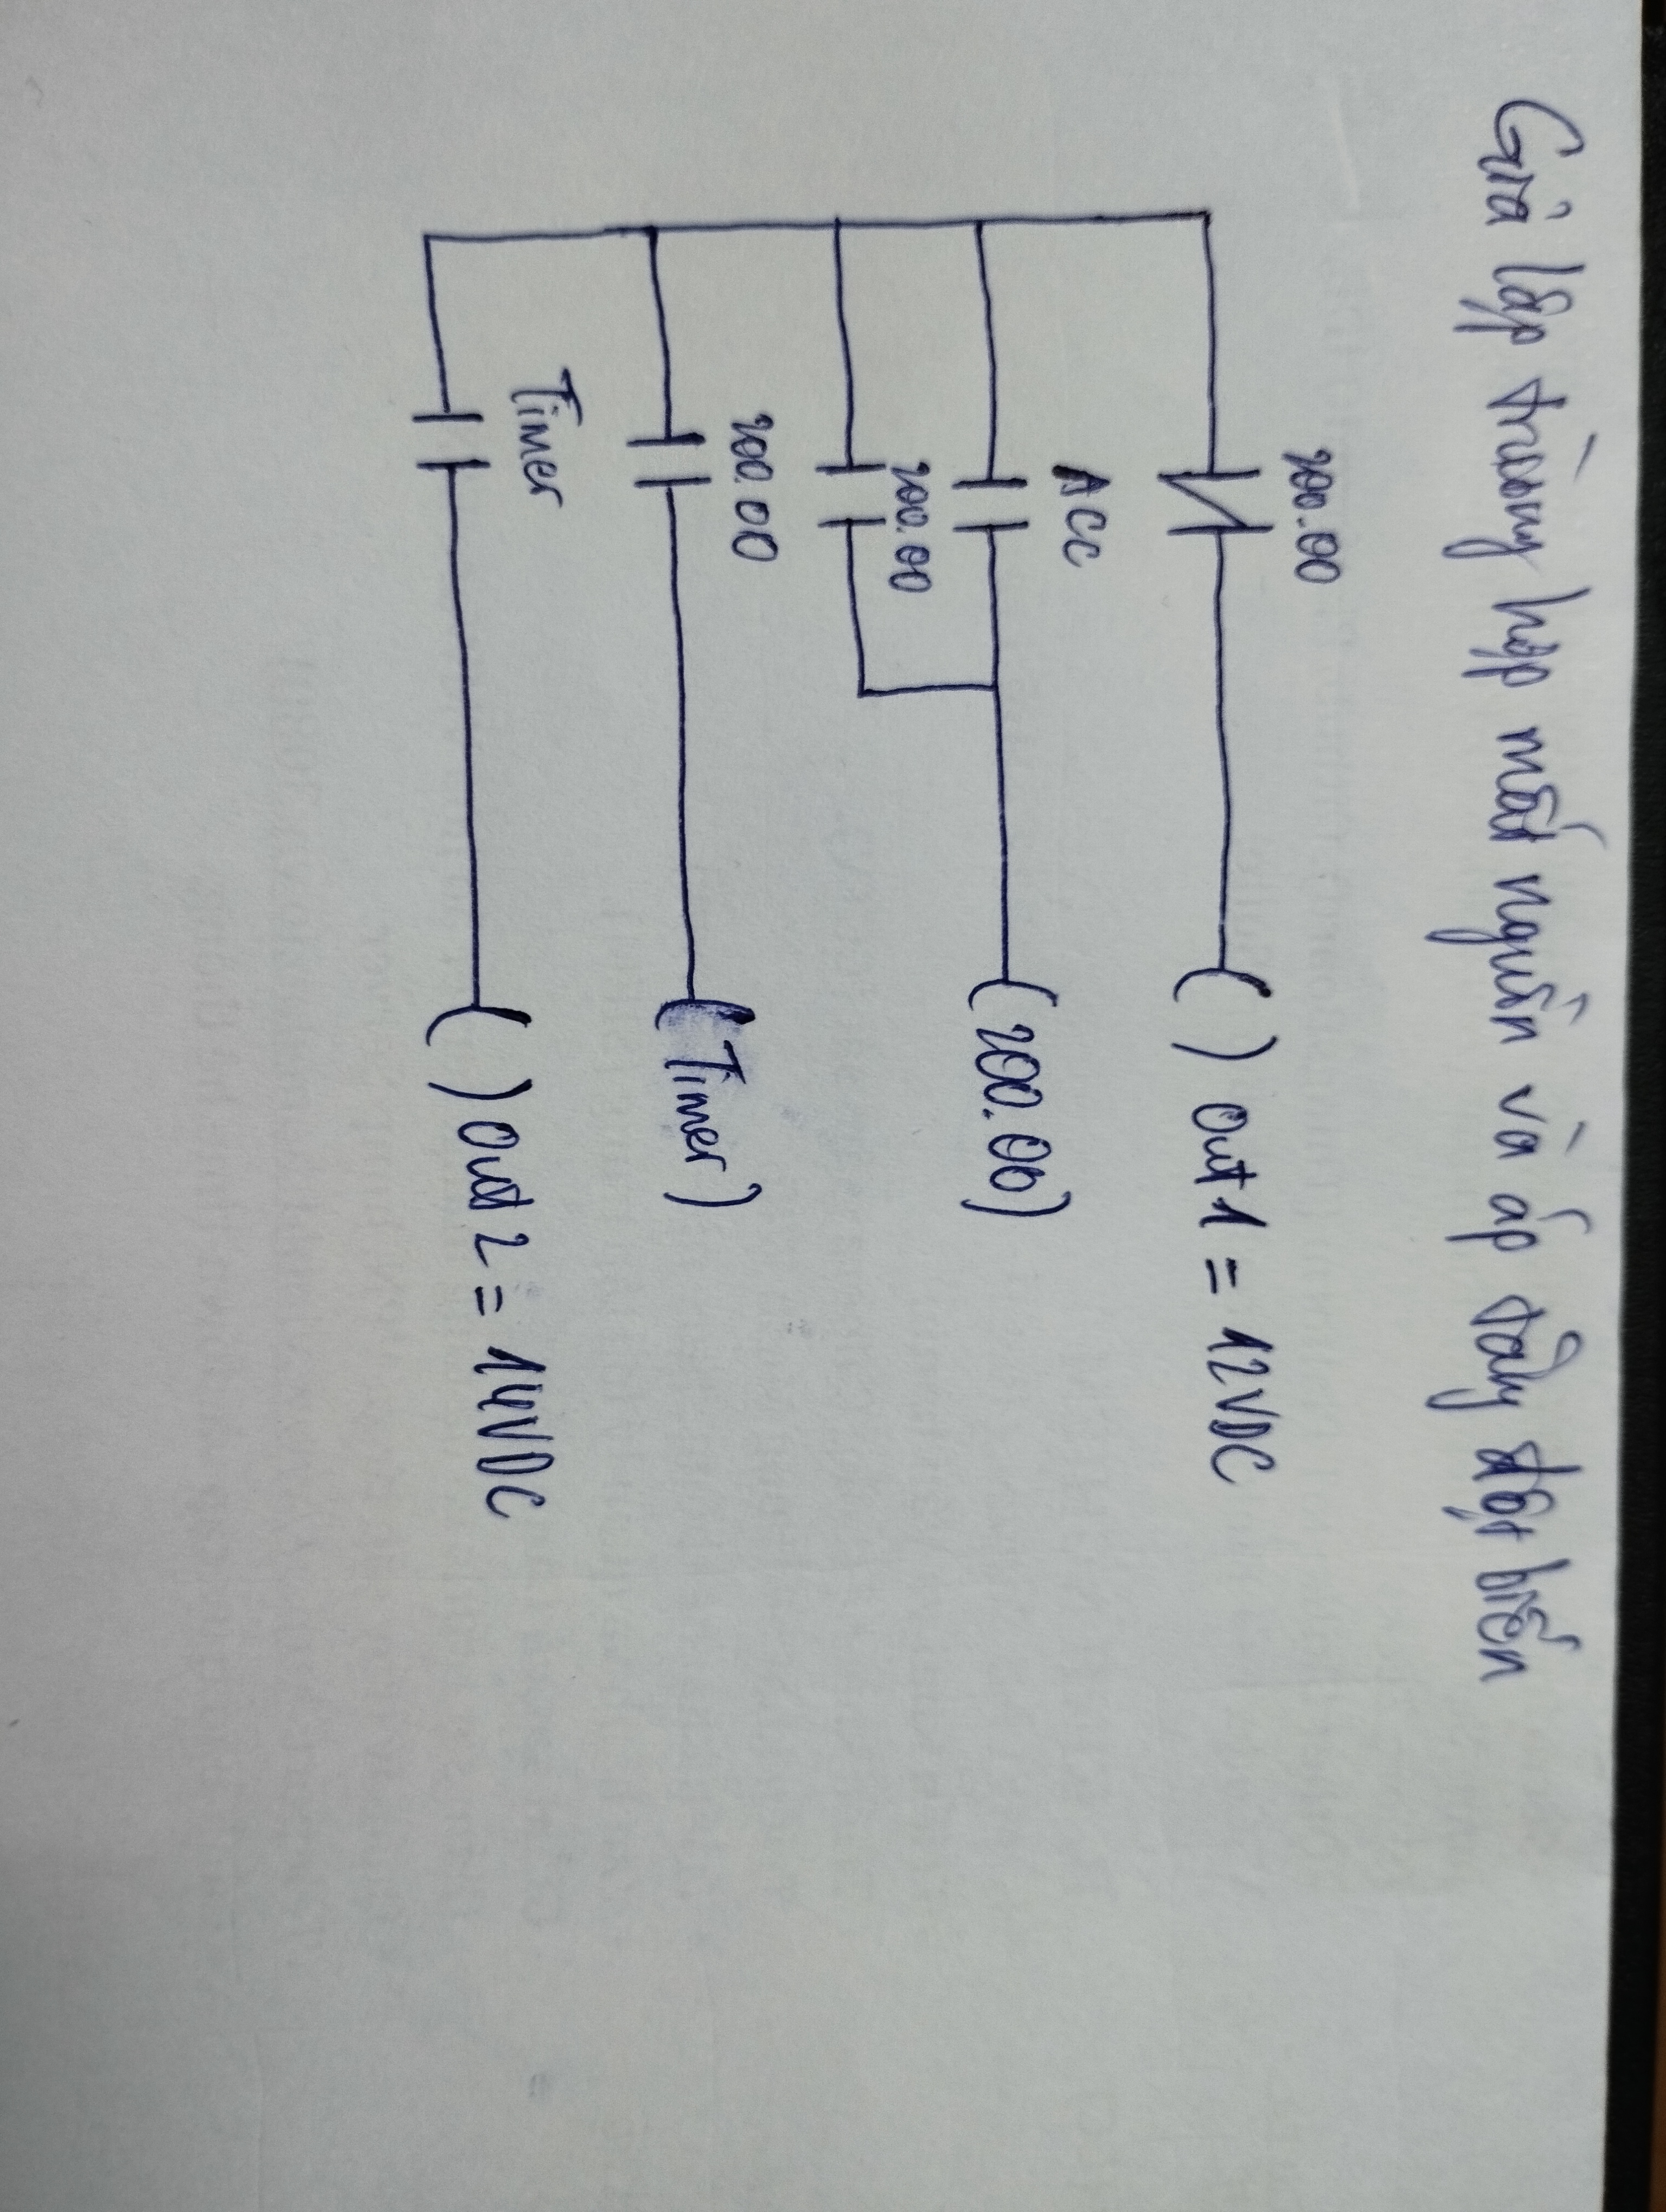 Giả lập trường hợp mất nguồn và áp tăng đột biến
200.00
( ) Out 1 = 12VDC
ACC
(200.00)
200.00
200.00
(Timer)
Timer
( ) Out 2 = 14VDC